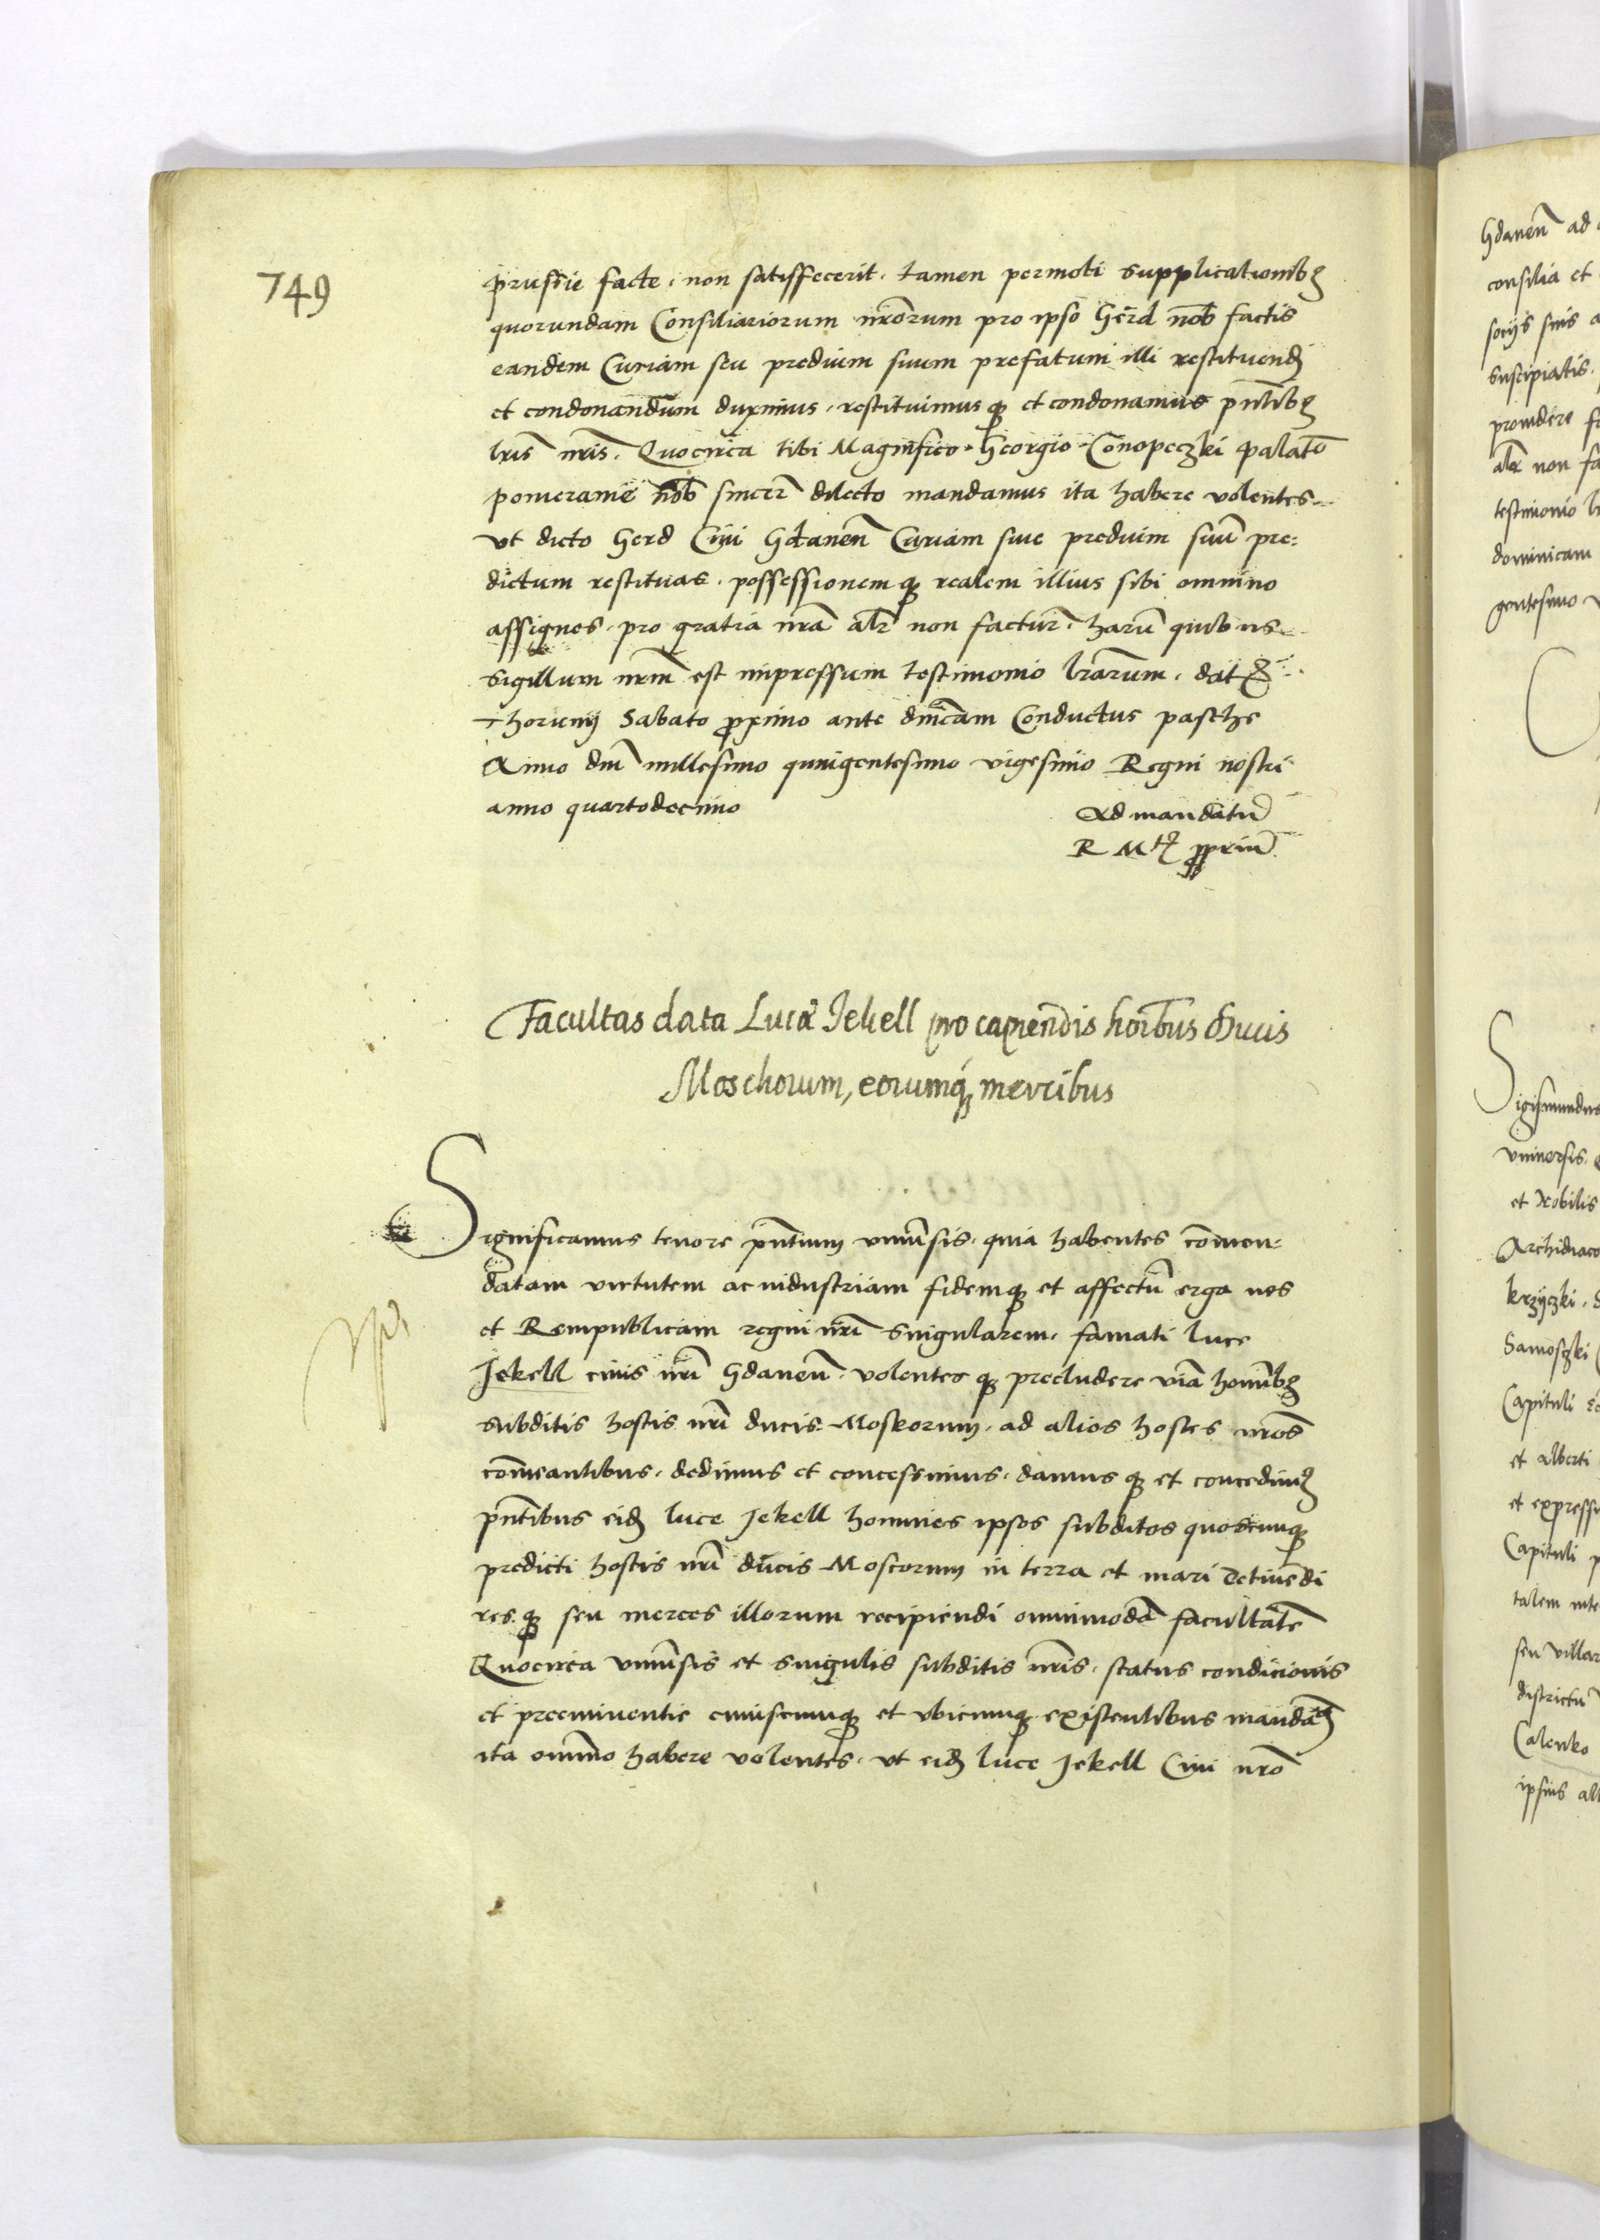 749
prussie facte. non satisfecerit. tamen permoti supplicationibꝫ
quorundam Consiliariorum nr̃orum pro ipso Gerd nob̃ factis
eandem Curiam seu predium suum prefatum illi restituend̃
et condonandum duximus. restituimusqꝫ et condonamus pñtibꝫ
lr̃is nr̃is. Quocirca tibi Magnifico Georgio Conopeczki palat̃o
pomeranie nob̃ sincer̃ dilecto mandamus ita habere volentes
vt dicto Gerd Ciui Gdaneñ Curiam siue predium suũ pre:
dictum restituas. possessionemqꝫ realem illius sibi omnino
assignes. pro gratia nr̃a alr̃ non factur̃. harũ quibus
sigillum nr̃m est impressum testimonio lr̃arum. dat
thorunij Sabato proximo ante dnicam Conductus pasche
Anno dnĩ millesimo quingentesimo vigesimo Regni nostri
anno quartodecimo
Ad mandatũ
R Mtꝭ propriũ
Facultas data Lucæ Jekell pro capiendis hoĩbus Ducis
Moschorum, eorumqꝫ mercibus
Significamus tenore pñtium vniũsis. quia habentes com̃en:
datam virtutem ac industriam fidemqꝫ et affectũ erga nos
et Rempublicam regni nr̃i singularem. famati luce
Jekell ciuis nr̃i Gdaneñ. volentesqꝫ precludere viã hominibꝫ
subditis hostis nr̃i ducis Moskorum. ad alios hostes nr̃os
com̃eantibus. dedimus et concessimus. damusqꝫ et concedimꝰ
pñtibus eid̃ luce Jekell homines ipsos subditos quoscunqꝫ
predicti hostis nr̃i ducis Moscorum in terra et mari detinẽdi
resqꝫ seu merces illorum recipiendi omnimodã facultatẽ
Quocirca vniũsis et singulis subditis nr̃is. status condicionis
et preeminentie cuiuscunqꝫ et vbicunqꝫ existentibus mandamꝰ
ita omnino habere volentes. vt eid̃ luce Jekell Ciui nr̃o
Gdaneñ ad
consilia et
socijs suis
suscipiatis.
prouidere
alr̃ non
testimonio
dominicam
gentesimo
Sigismundus
vniuersis.
et Nobilis
krzyczki.
Samosczki
Capituli
et alberti
et
Capituli
talem
seu villar
districtu
Calenko
ipsius